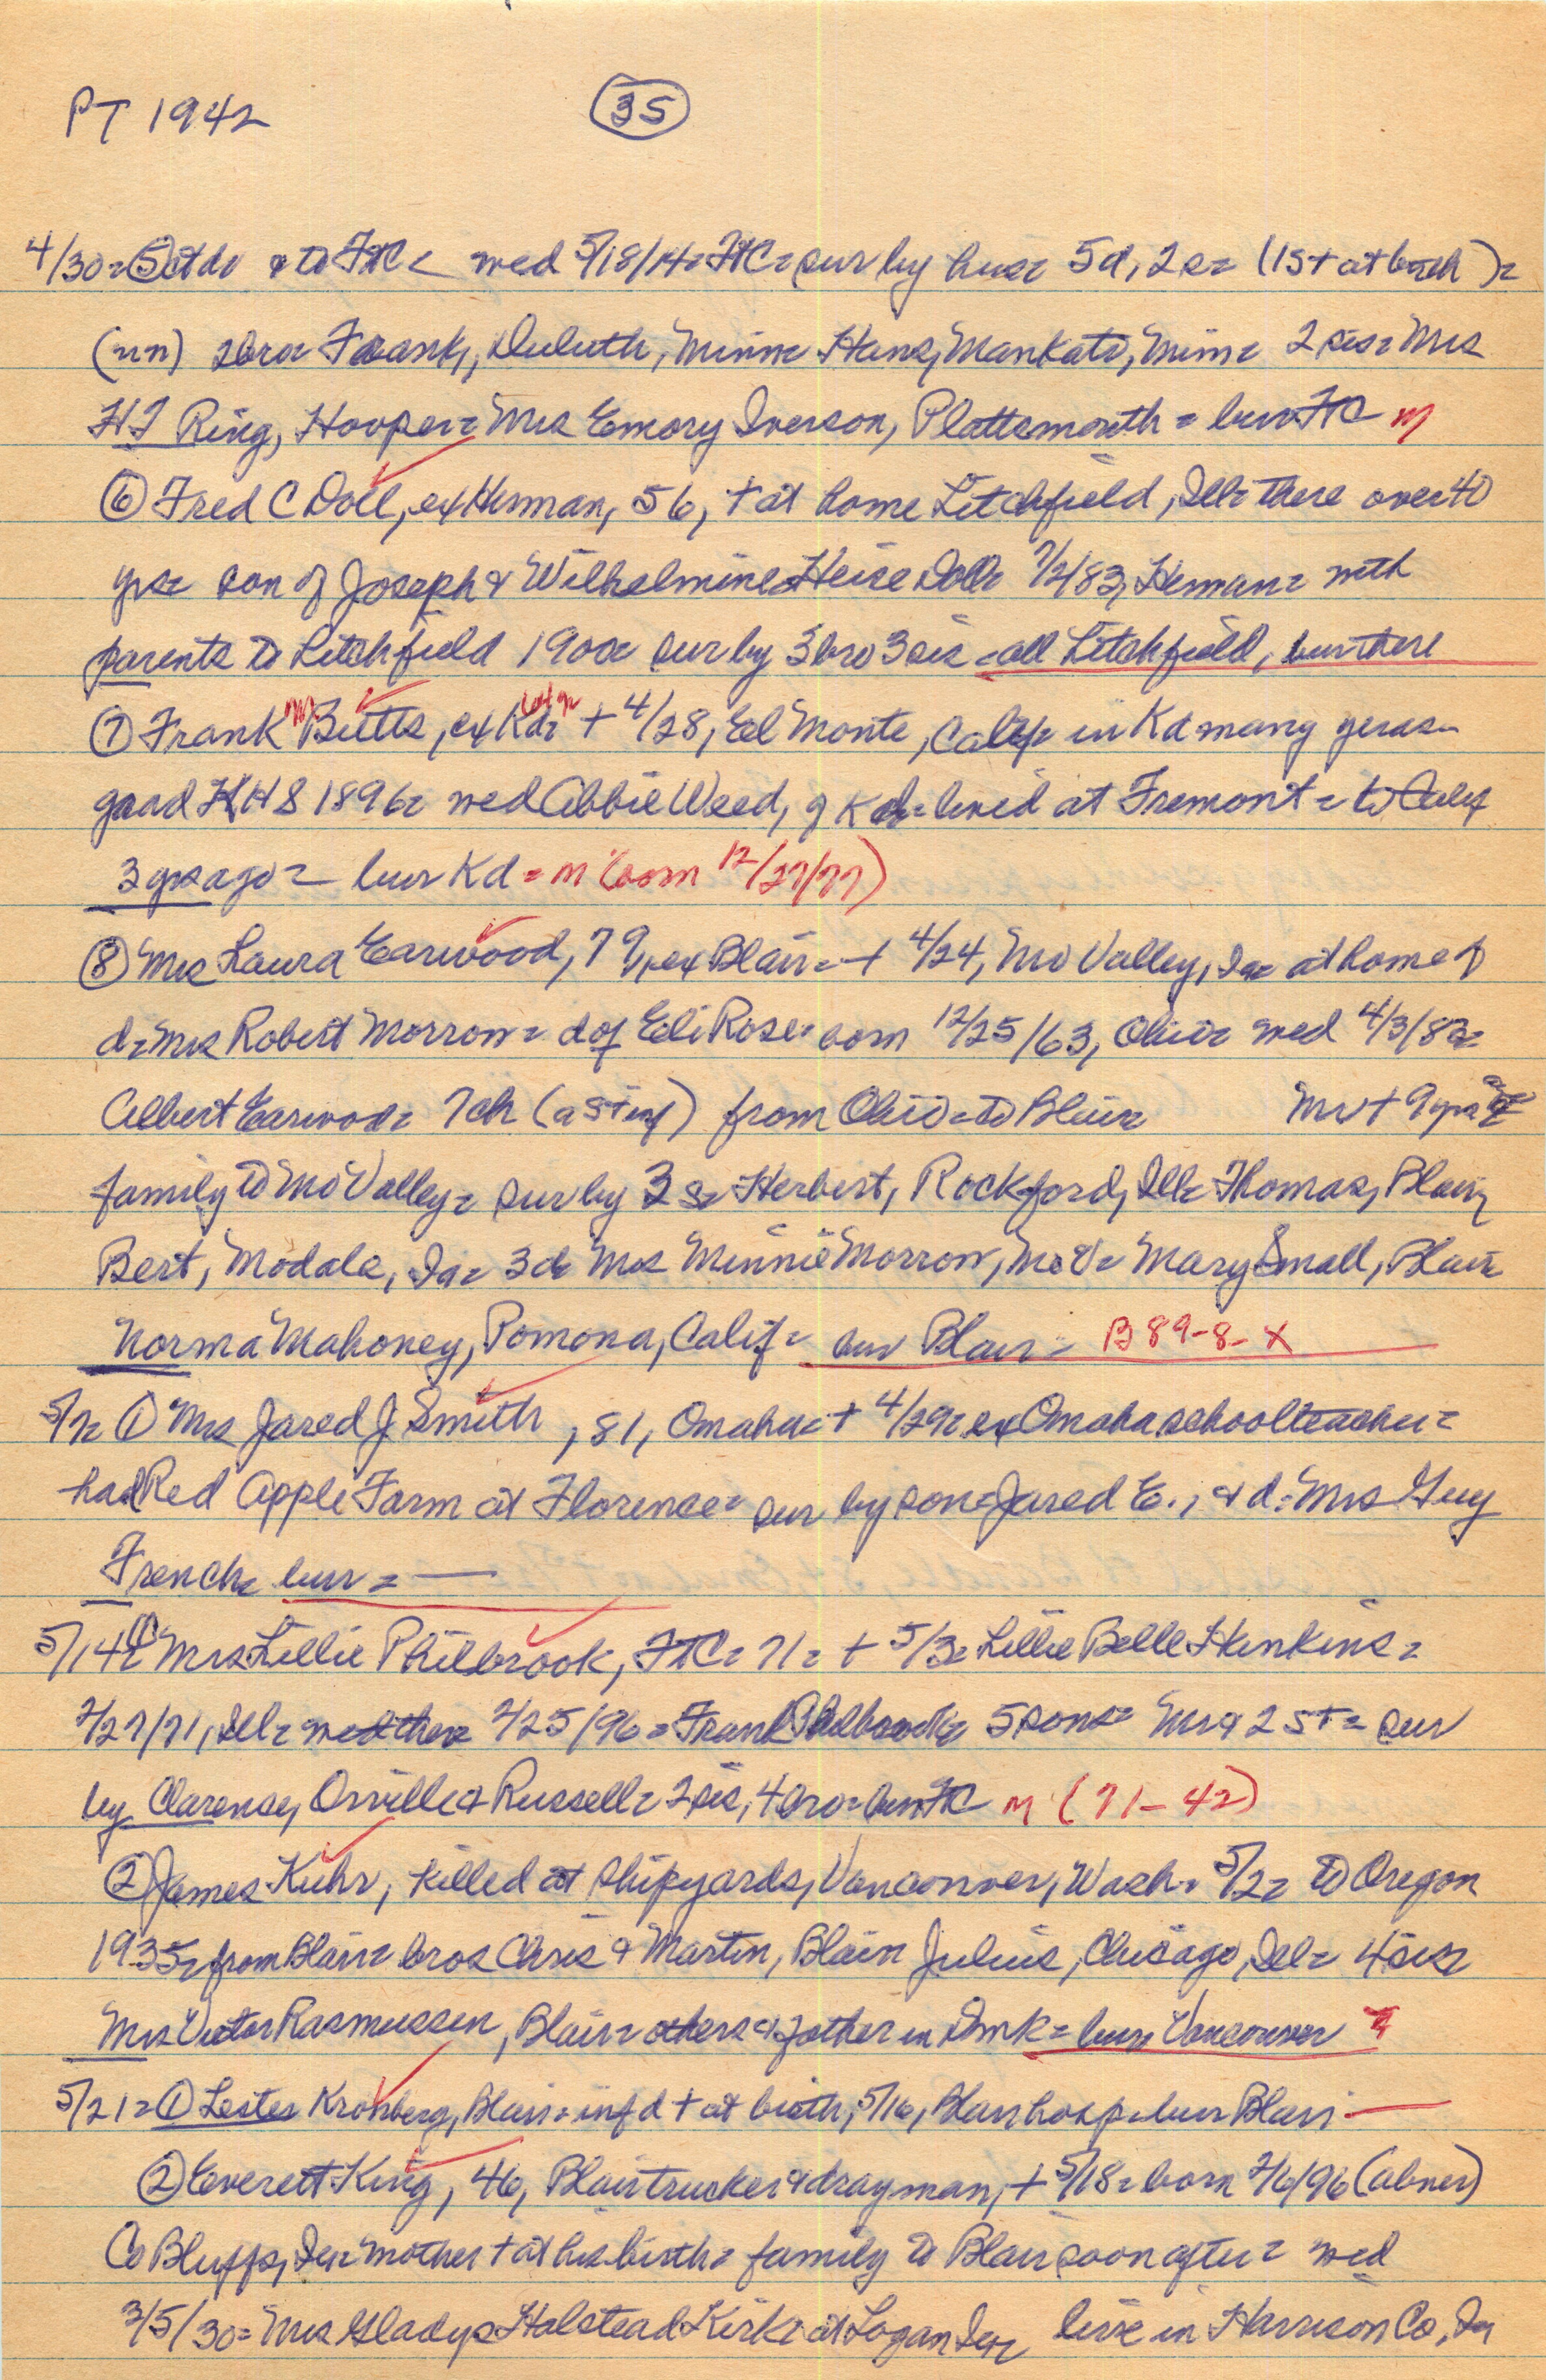 PT 1942
35
4/30= ⑤ctd= & to FtC= wed 5/18/14= FtC= sur by hus= 5d, 2s= (1s+ at birth)=
(nn) 2bro= Frank, Duluth, Minn= Hans, Mankato, Minn= 2 sis= Mrs
HJ Ring, Hooper= Mrs Emory Iverson, Plattsmouth= bur FtC m
⑥ Fred C Doll, ex Herman, 56, + at home Litchfield, Ill= there over 40
yrs= son of Joseph & Wilhelmine Heise Doll= Herman= with
parents to Litchfield 1900= sur by 3 bro 3 sis= all Litchfield, bur there
⑦ Frank M Butts, ex Kd= + 4/28, El Monte, Calif= in Kd many years=
grad KHS 1896= wed Abbie Weed, of Kd= lived at Fremont= to Calif
3 yrs ago= bur Kd= m (born 12/27/77)
⑧ Mrs Laura Earwood, 79, ex Blair= + 4/24, Mo Valley, Ia= at home of
d= Mrs Robert Morrow= d of Eli Rose= born 12/25/63, Ohio= wed
Albert Earwood= 7ch (a s+inf) from Ohio= to Blair= Mr + 9 yrs
family to Mo Valley= sur by 3 s= Herbert, Rockford, Ill= Thomas, Blair,
Bert, Modale, Ia= 3d= Mrs Minnie Morrow, MoV= Mary Small, Blair=
Norma Mahoney, Pomona, Calif= bur Blair= B 89-8-X
① Mrs Jared J Smith, 81, Omaha= + 4/29= ex Omaha schoolteacher=
had Red Apple Farm at Florence= sur by son= Jared E., & d= Mrs Guy
French= bur = —
5/14= ① Mrs Lillie Philbrook, FtC= 71= + 5/3= Lillie Belle Henkins=
2/27/71, Ill= wed there 2/25/96= Frank Philbrook= 5 sons= Mr & 2 s+= sur
by Clarence, Orville & Russell= 2 sis, 4 bro= bur FtC m (71-42)
② James Kuhr, killed at shipyards, Vancouver, Wash= 5/2= to Oregon
1935= from Blair= bros Chris & Martin, Blair= Julius, Chicago, Ill= 4 sis=
Mrs Victor Rasmussen, Blair= others & father in Dmk= bur Vancouver
5/21= ① Lester Kronberg, Blair= inf d + at birth, 5/16, Blair hosp= bur Blair —
② Everett King, 46, Blair trucker & drayman, + 5/18= born 2/6/96 (Abner)
Co Bluffs, Ia= mother + at his birth= family to Blair soon after= wed
3/5/30= Mrs Gladys Halstead Kirk= at Logan Ia= live in Harrison Co, Ia